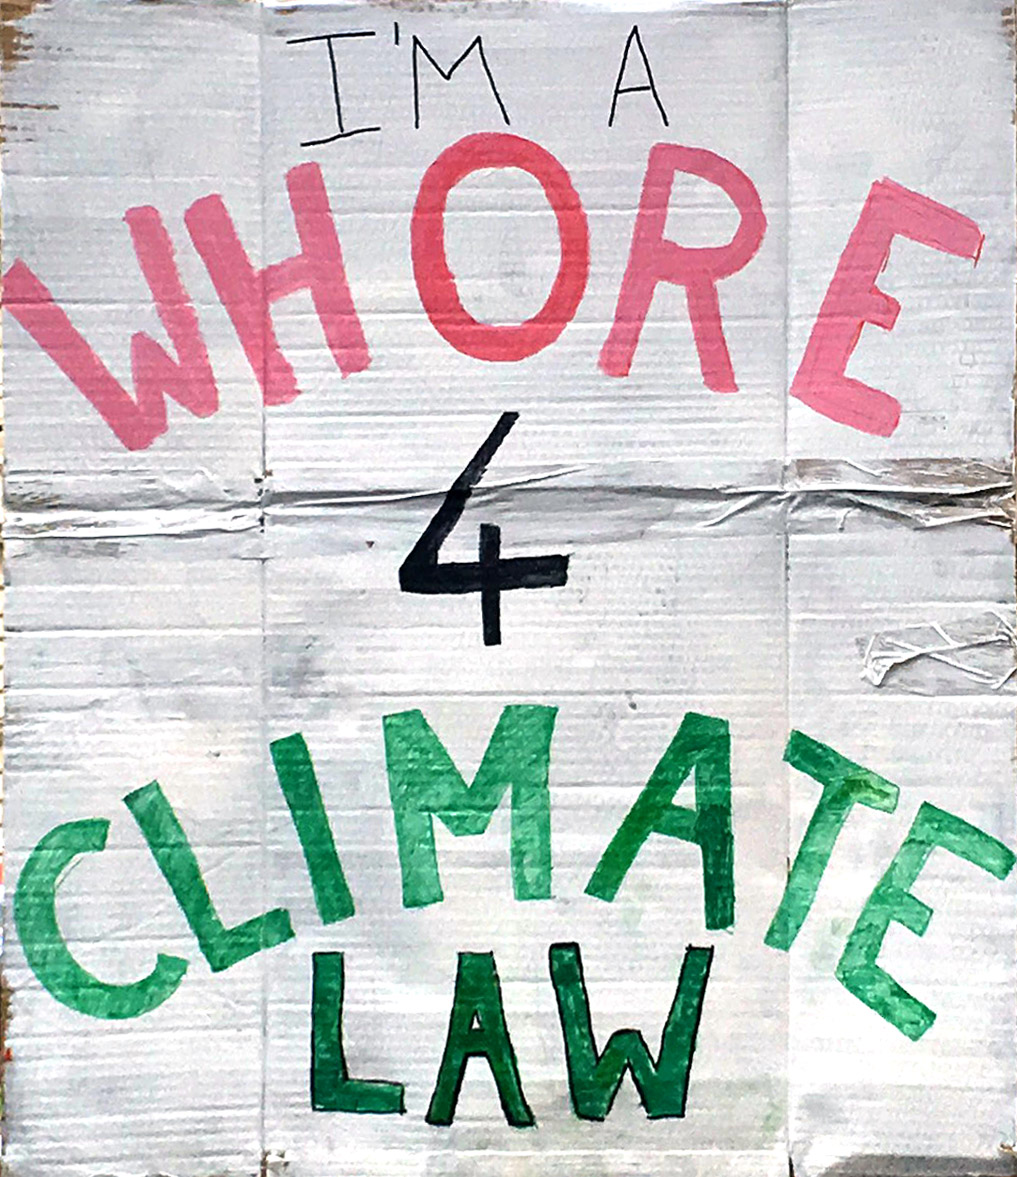 I'M A
WHORE
4
CLIMATE
LAW